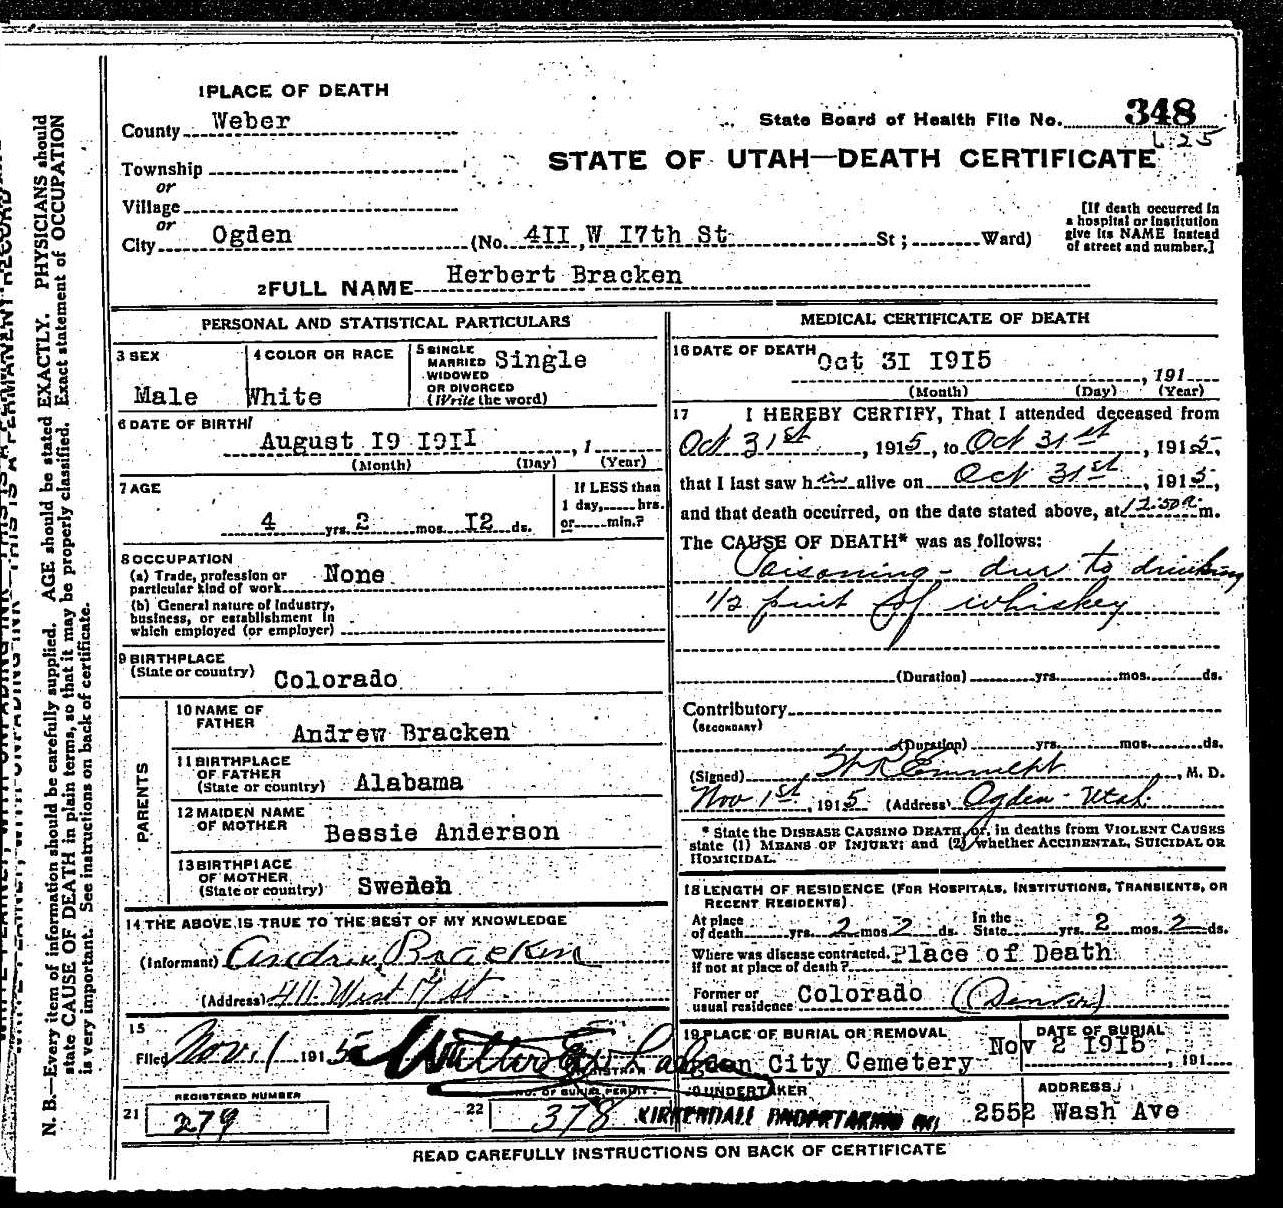 1 PLACE OF DEATH
County Weber
State Board of Health File No. 348
625
Township
or
STATE OF UTAH—DEATH CERTIFICATE
Village
or
City Ogden (No. 411 W 17th St St ; Ward)
[If death occurred in
a hospital or institution
give its NAME instead
of street and number.]
2 FULL NAME Herbert Bracken
PERSONAL AND STATISTICAL PARTICULARS
3 SEX
Male
4 COLOR OR RACE
White
5 SINGLE
MARRIED
WIDOWED
OR DIVORCED
(Write the word)
Single
6 DATE OF BIRTH
August 19 1911 , 1
(Month) (Day) (Year)
7 AGE
4 yrs. 2 mos. 12 ds.
If LESS than
1 day, hrs.
or min.?
8 OCCUPATION
(a) Trade, profession or
particular kind of work None
(b) General nature of Industry,
business, or establishment in
which employed (or employer)
9 BIRTHPLACE
(State or country) Colorado
PARENTS
10 NAME OF
FATHER
Andrew Bracken
11 BIRTHPLACE
OF FATHER
(State or country) Alabama
12 MAIDEN NAME
OF MOTHER
Bessie Anderson
13 BIRTHPLACE
OF MOTHER
(State or country) Sweden
14 THE ABOVE IS TRUE TO THE BEST OF MY KNOWLEDGE
(Informant) Andrew Bracken
(Address) 411 West 17 st
15
Filed Nov. 1 1915
REGISTERED NUMBER
21 279
NO. OF BURIAL PERMIT
22 378
MEDICAL CERTIFICATE OF DEATH
16 DATE OF DEATH Oct 31 1915
, 191
(Month) (Day) (Year)
17 I HEREBY CERTIFY, That I attended deceased from
Oct 31st , 1915, to Oct 31st , 1915,
that I last saw him alive on Oct 31st , 1915,
and that death occurred, on the date stated above, at 12:50a m.
The CAUSE OF DEATH* was as follows:
Poisoning - due to drinking
1/2 pint of whiskey
(Duration) yrs. mos. ds.
Contributory
(SECONDARY)
(Duration) yrs. mos. ds.
(Signed) , M. D.
Nov 1st, 1915 (Address) Ogden - Utah.
* State the DISEASE CAUSING DEATH, or, in deaths from VIOLENT CAUSES
state (1) MEANS OF INJURY; and (2) whether ACCIDENTAL, SUICIDAL OR
HOMICIDAL.
18 LENGTH OF RESIDENCE (FOR HOSPITALS, INSTITUTIONS, TRANSIENTS, OR
RECENT RESIDENTS).
At place
of death yrs. 2 mos. 2 ds. In the
State yrs. 2 mos. 2 ds.
Where was disease contracted,
if not at place of death? Place of Death
Former or
usual residence Colorado (Denver)
19 PLACE OF BURIAL OR REMOVAL
Ogden City Cemetery
DATE OF BURIAL
Nov 2 1915 , 191
20 UNDERTAKER
KIRKENDALL UNDERTAKING
ADDRESS
2552 Wash Ave
READ CAREFULLY INSTRUCTIONS ON BACK OF CERTIFICATE
N. B.—Every item of information should be carefully supplied. AGE should be stated EXACTLY. PHYSICIANS should
state CAUSE OF DEATH in plain terms, so that it may be properly classified. Exact statement of OCCUPATION
is very important. See instructions on back of certificate.